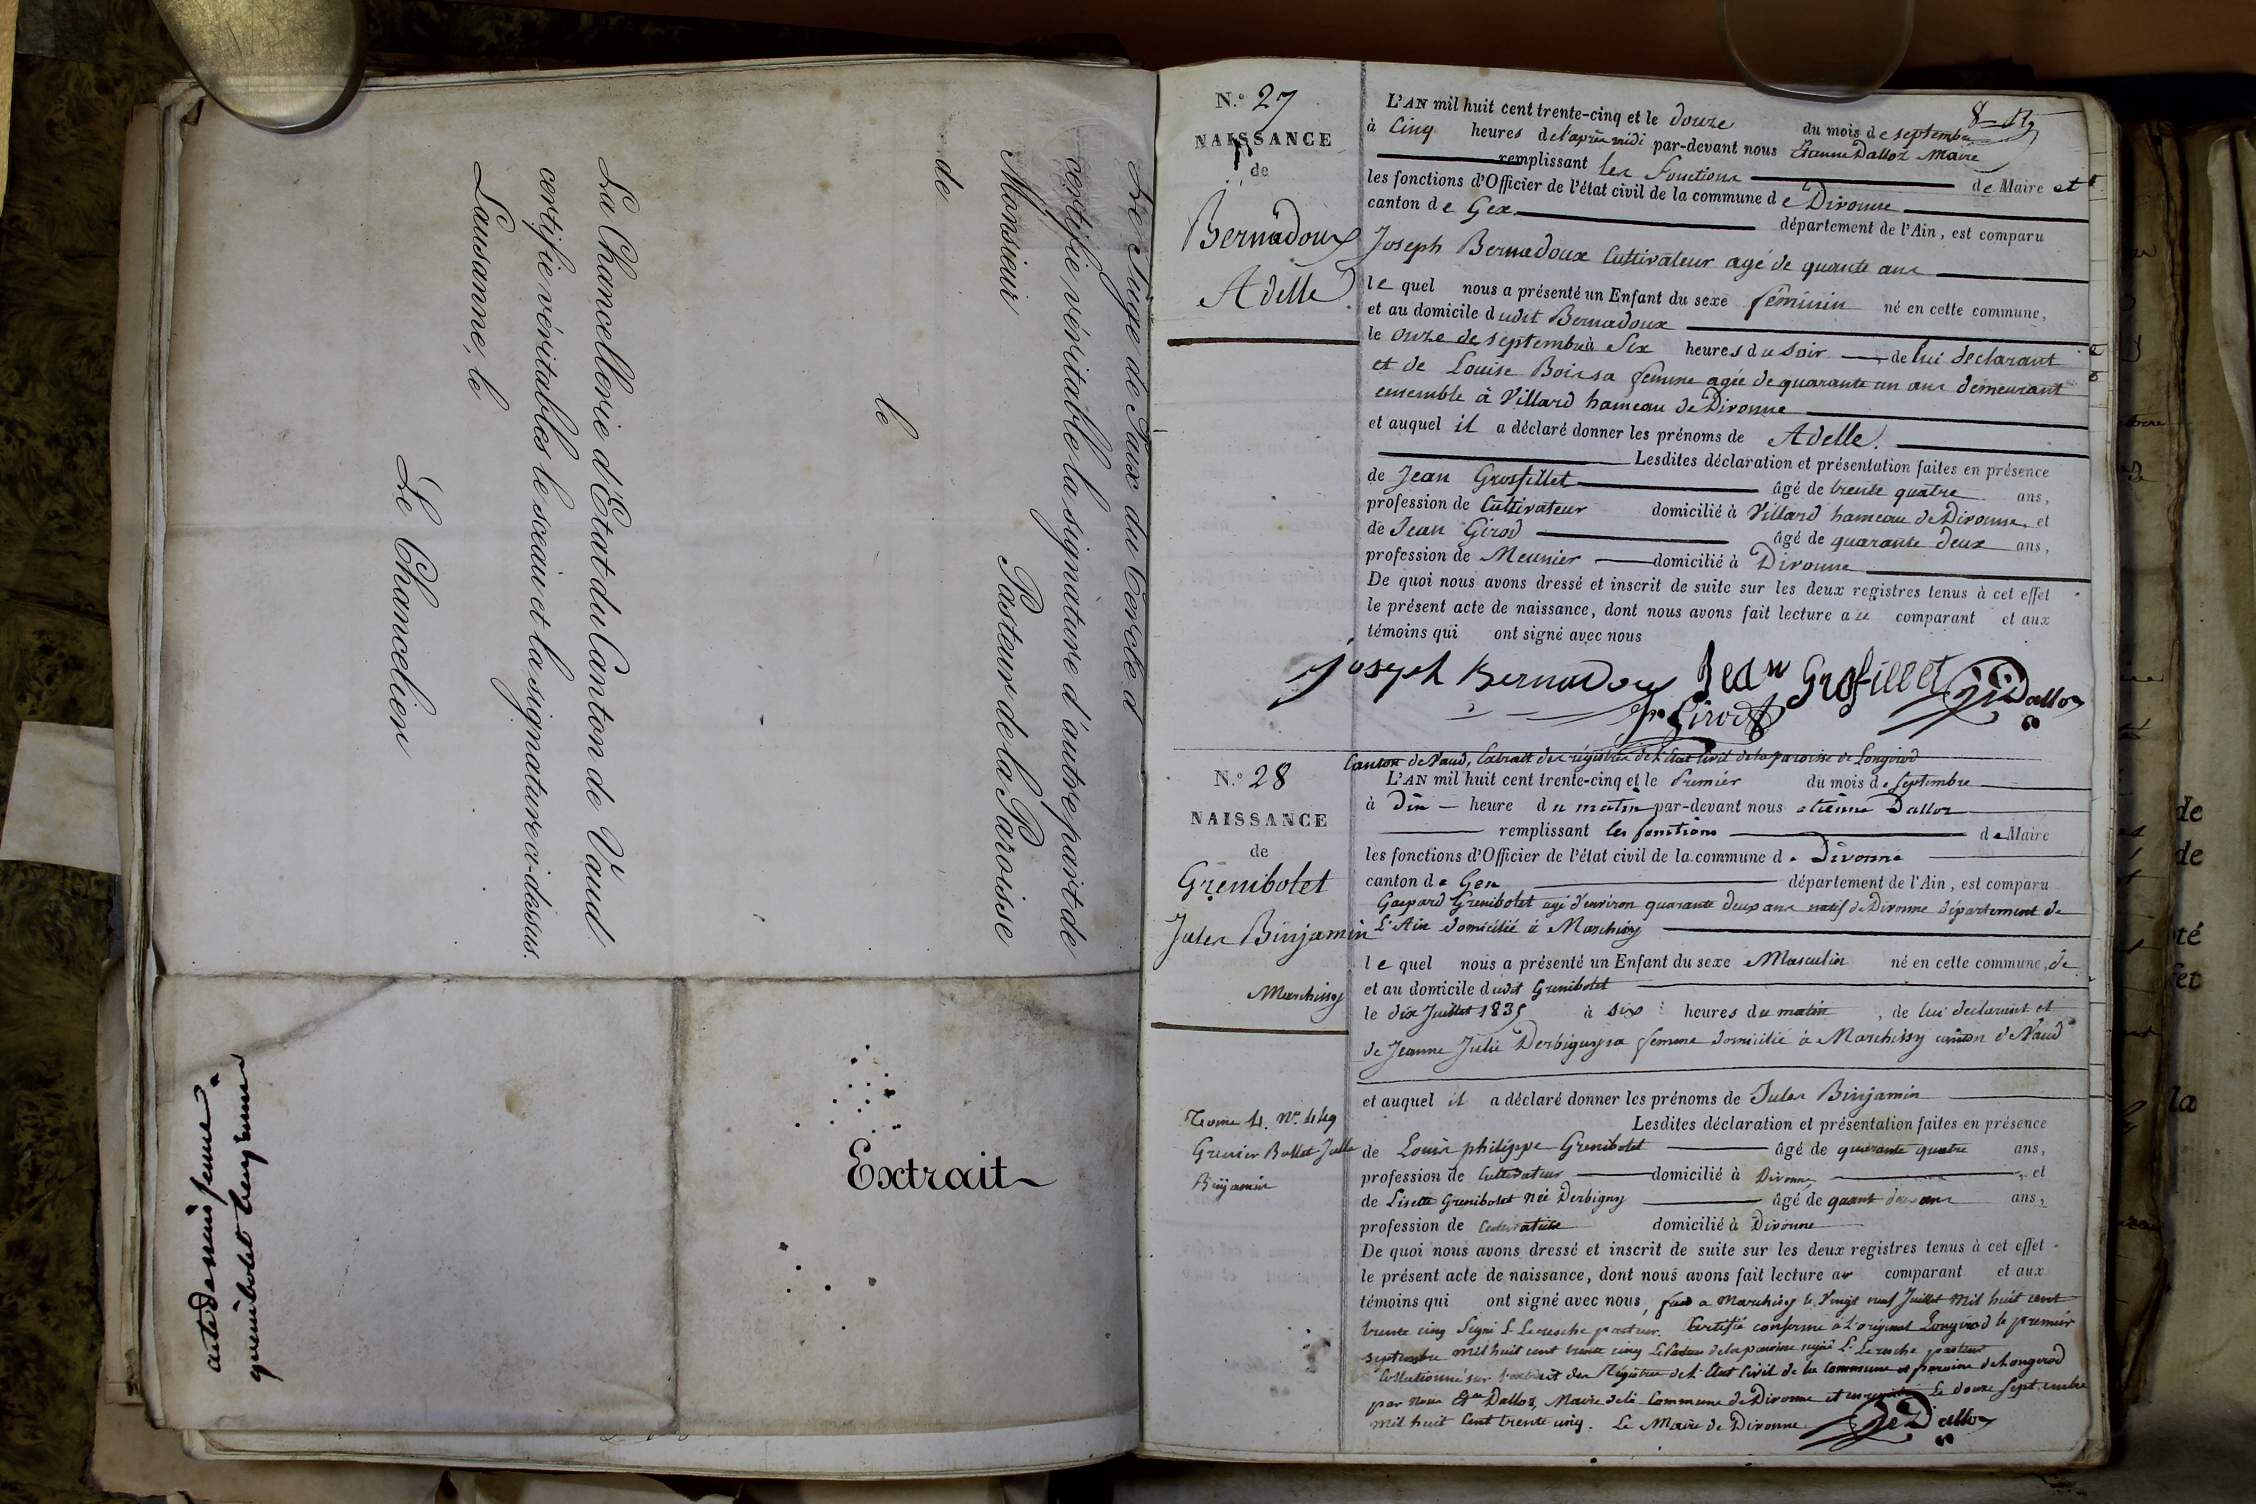 Le Juge de Paix du Cercle d
certifie véritable la signature d'autre part de
Monsieur Pasteur de la Paroisse
de
le
La Chancellerie d'Etat du Canton de Vaud
certifie véritables le sceau et la signature ci-dessus.
Lausanne, le
Le Chancelier
Extrait
acte de
N.º 27
NAISSANCE
de
Bernadoux
Adelle
L'AN mil huit cent trente-cinq et le douze du mois de septembre
à Cinq heures de l'après midi par-devant nous Etienne Dalloz Maire
remplissant les fonctions de Maire et
les fonctions d'Officier de l'état civil de la commune de Divonne
canton de Gex département de l'Ain, est comparu
Joseph Bernadoux Cultivateur agé de quarante ans
le quel nous a présenté un Enfant du sexe féminin né en cette commune,
et au domicile dudit Bernadoux
le onze de septembre à Six heures du Soir de lui déclarant
et de Louise Boissa femme agée de quarante un ans demeurant
ensemble à Villard hameau de Divonne
et auquel il a déclaré donner les prénoms de Adelle.
Lesdites déclaration et présentation faites en présence
de Jean Grosfillet âgé de trente quatre ans,
profession de Cultivateur domicilié à Villard hameau de Divonne, et
de Jean Girod âgé de quarante deux ans,
profession de Meunier domicilié à Divonne
De quoi nous avons dressé et inscrit de suite sur les deux registres tenus à cet effet
le présent acte de naissance, dont nous avons fait lecture au comparant et aux
témoins qui ont signé avec nous
Joseph Bernadoux Jean Grosfillet Dalloz
Girod
Canton de Vaud, Extrait des régistres de l'Etat Civil de la paroisse de Longirod
N.º 28
NAISSANCE
de
Grenibolet
Jules Binjamin
Marchissy
Tome 4. Nº 449
Grenier Bollet Jules
Binjamin
L'AN mil huit cent trente-cinq et le Premier du mois de Septembre
à Dix heure du matin par-devant nous etienne Dalloz
remplissant les fonctions de Maire
les fonctions d'Officier de l'état civil de la commune de Divonne
canton de Gex département de l'Ain, est comparu
Gaspard Grenibolet agé d'environ quarante deux ans natif de Divonne département de
L'Ain domicilié à Marchissy
le quel nous a présenté un Enfant du sexe Masculin né en cette commune, de
et au domicile dudit Grenibolet
le dix Juillet 1835 à six heures du matin, de lui declarant et
de Jeanne Julie Derbigny sa femme domicilié à Marchissy canton de Vaud
et auquel il a déclaré donner les prénoms de Jules Binjamin
Lesdites déclaration et présentation faites en présence
de Louis philippe Grenibolet âgé de quarante quatre ans,
profession de Cultivateur domicilié à Divonne, et
de Lisette Grenibolet née Derbigny âgé de ans,
profession de domicilié à Divonne
De quoi nous avons dressé et inscrit de suite sur les deux registres tenus à cet effet
le présent acte de naissance, dont nous avons fait lecture au comparant et aux
témoins qui ont signé avec nous, fait a Marchissy le Vingt neuf Juillet Mil huit cent
trente cinq Signé L. Leresche pasteur. Certifié conforme à L'original Longirod le premier
septembre mil huit cent trente cinq Le Pasteur de la paroisse signé L. Leresche pasteur
Collationné sur l'extrait des Régistres de l'Etat Civil de la Commune et paroisse de Longirod
par Nous Dalloz, Maire de la Commune de Divonne et Le douze Septembre
mil huit Cent trente cinq. Le Maire de Divonne Dalloz